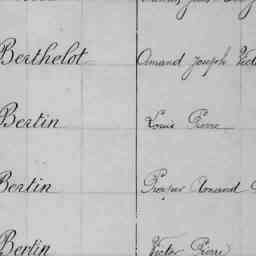 Berthelot Amand Joseph Vict
Bertin Louis Pierre
Bertin Prosper Armand
Bertin Victor Pierre